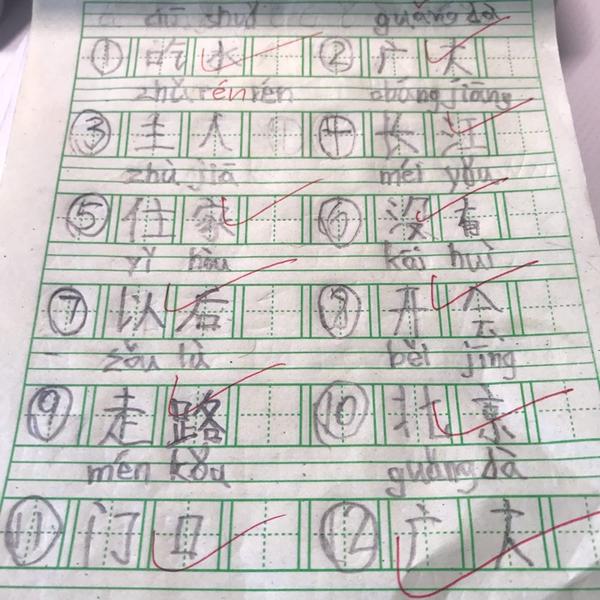 chī shuǐ guǎng dà
① 吃水 ② 广大
zhǔ rén rén
③ 主人 ④ 长江
zhù jiā méi yǒu
⑤ 住家 ⑥ 没有
yǐ hòu kāi huì
⑦ 以后 ⑧ 开会
zǒu lù běi jīng
⑨ 走路 ⑩ 北京
mén kǒu guǎng dà
⑪ 门口 ⑫ 广大